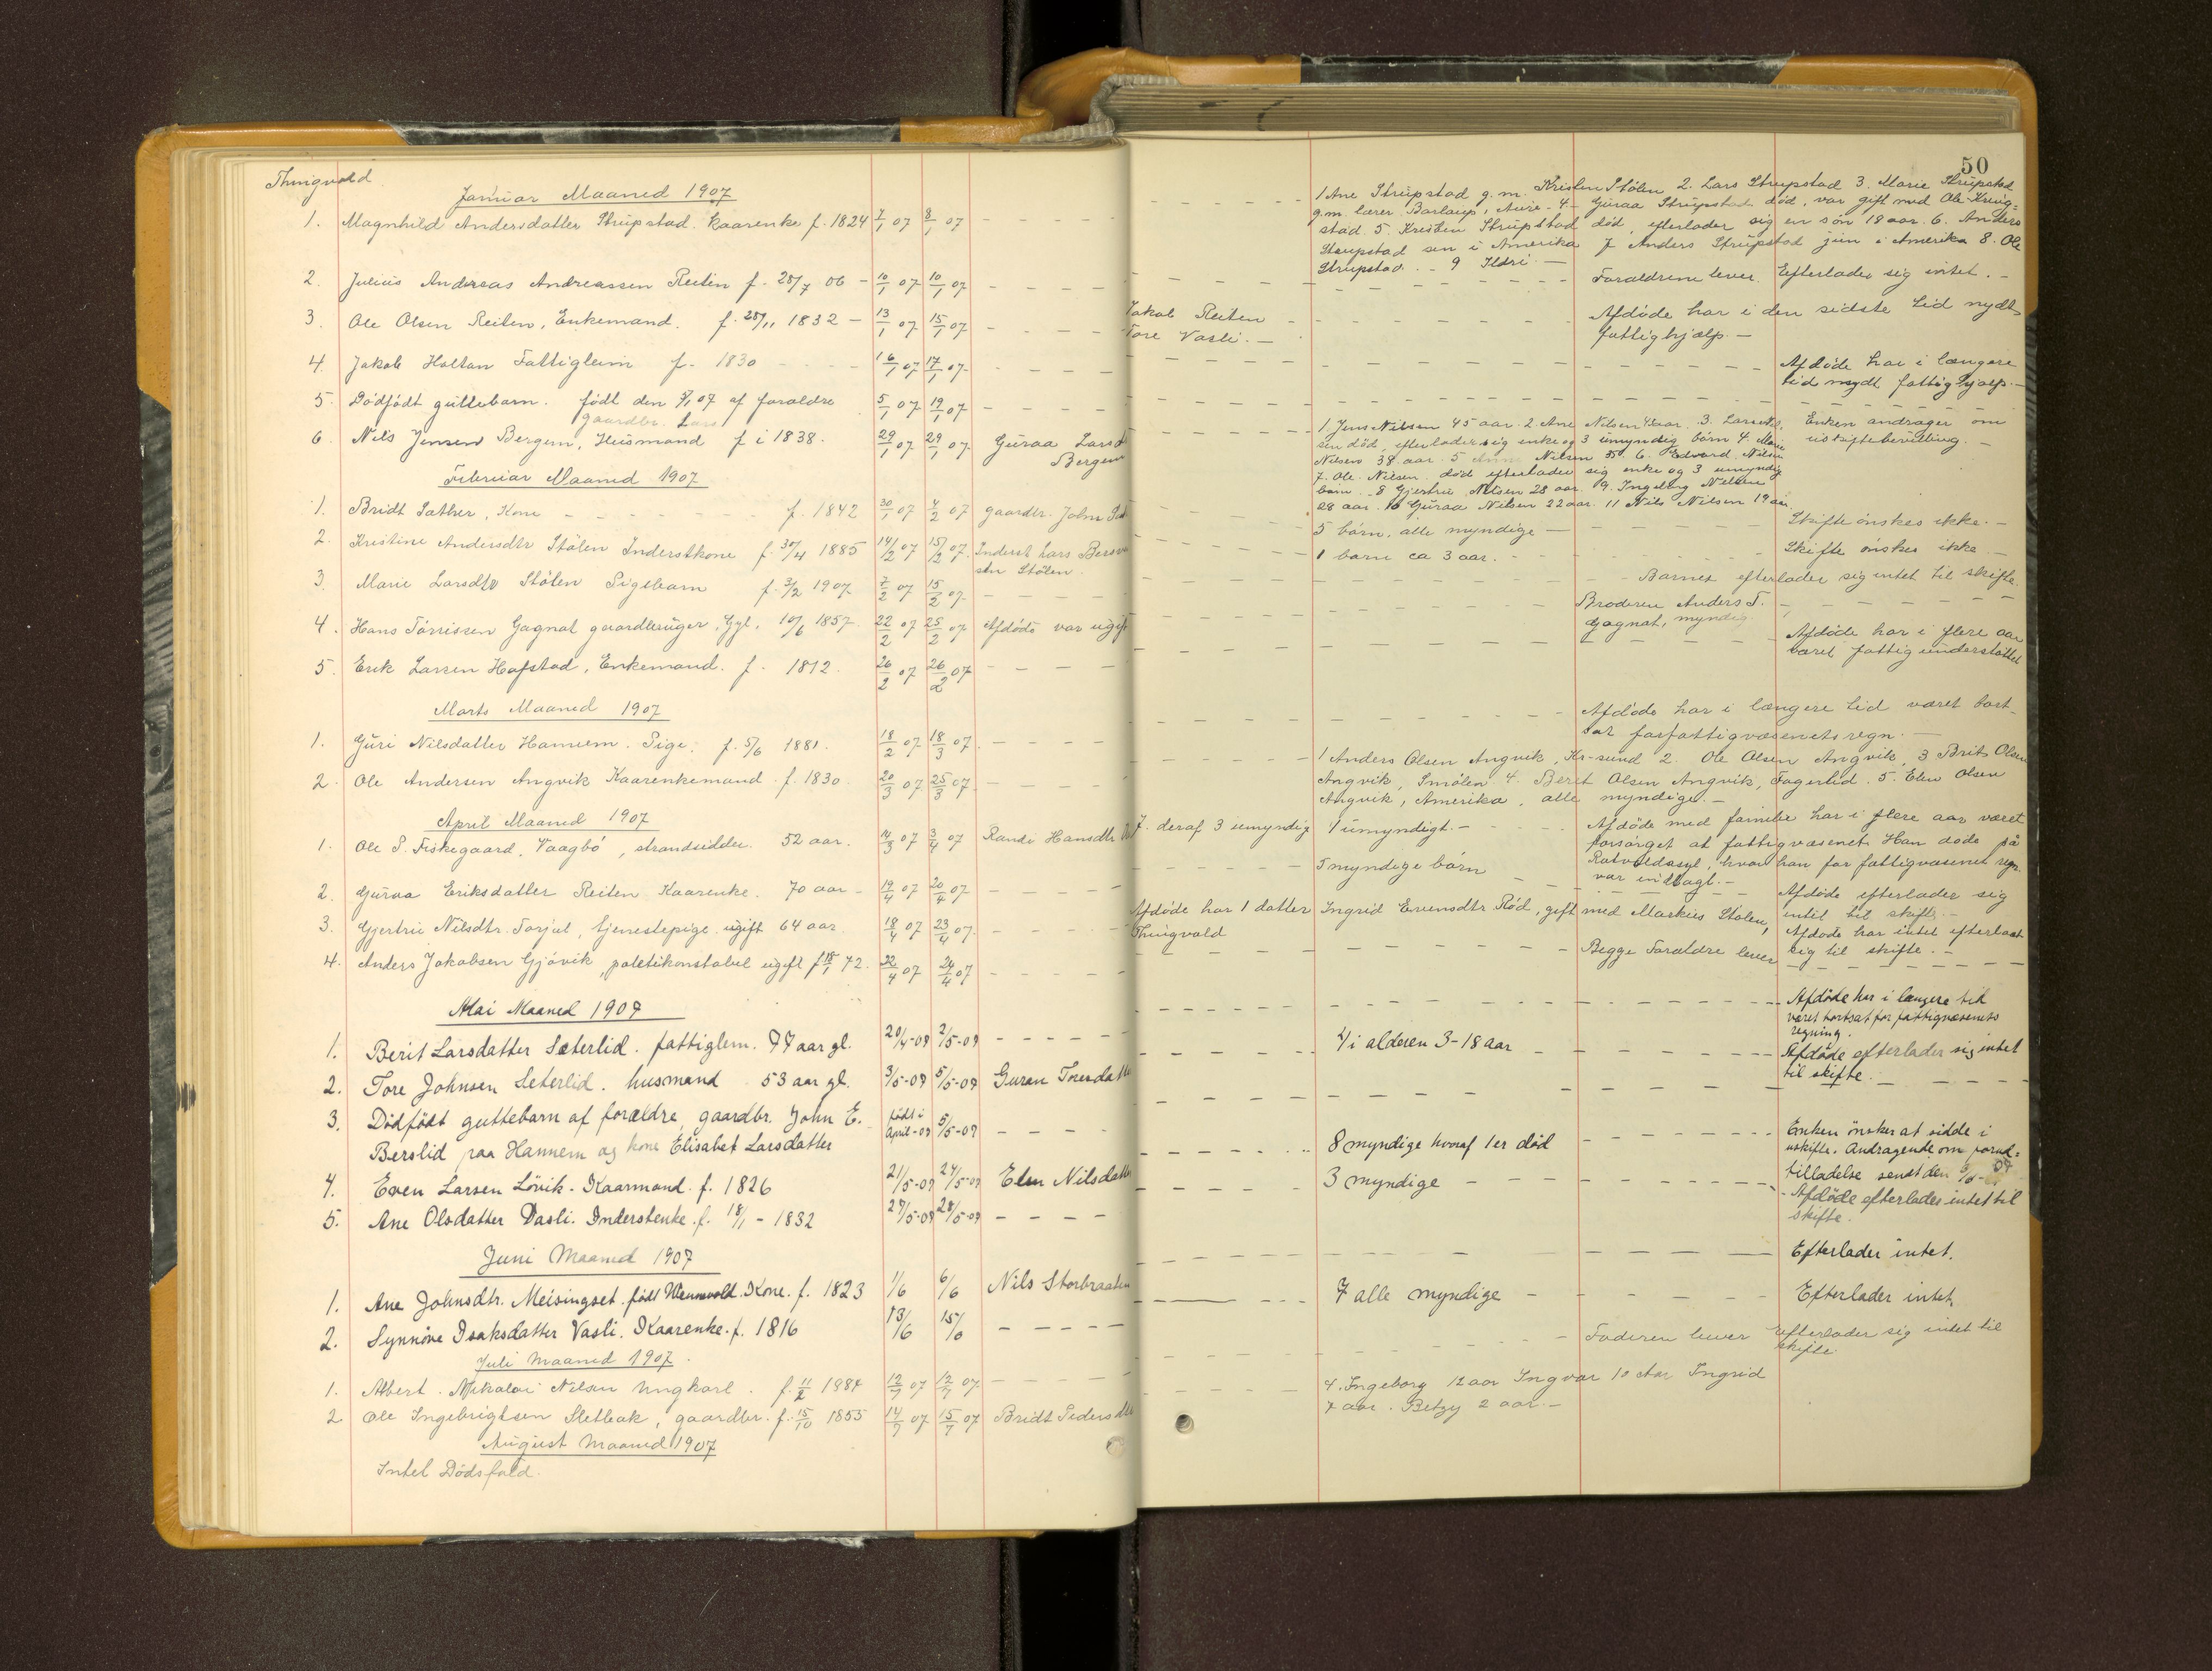 50
Thingvold
Januar Maaned 1907
1. Magnhild Andersdatter Strupstad. Kaarenke f. 1824 7/1 07 8/1 07 - - - -
1 Ane Strupstad g.m. Kristen Stölen 2. Lars Strupstad 3. Marie Strupstad
g.m. lærer Barlaup, Aure - 4 - Guraa Strupstad död, var gift med Ole Kring=
stad 5. Kristen Strupstad död, efterlader sig en sön 18 aar. 6. Anders
Strupstad sen i Amerika 7 Anders Strupstad jun i Amerika 8. Ole
Strupstad. - 9 Ildri. -
2. Julius Andreas Andreassen Reiten f. 28/7 06 - 10/1 07 10/1 07 - - - - Forældrene lever. Efterlader sig intet. -
3. Ole Olsen Reiten, Enkemand. f. 28/11 1832 - 13/1 07 15/1 07 - - - - Jakob Reiten
Tore Vasli. -
Afdöde har i den sidste tid nydt
fattighjælp. -
4. Jakob Holtan Fattiglem f. 1830 - - - - 16/1 07 17/1 07 - - - -
Afdöde har i længere
tid nydt fattighjælp. -
5. Dödfödt guttebarn. födt den 5/1 07 af forældre 5/1 07 19/1 07 - - - -
gaardbr. Lars
6. Nils Jensen Bergem, Husmand f i 1838. 29/1 07 29/1 07. Guraa Larsd
Bergem
1. Jens Nilsen 45 aar. 2. Ane Nilsen aar. 3. Lars Nil-
sen död, efterlader sig enke og 3 umyndig börn 4. Marie
Nilsen 38 aar. 5 Nilsen 35. 6. Edvard Nilsen
7. Ole Nilsen död efterlader sig enke og 3 umyndig
barn - 8 Gjertru Nilsen 28 aar. 9. Ingeborg Nilsen
28 aar. 10 Guraa Nilsen 22 aar. 11 Nils Nilsen 19 aar
Enken andrager om
uskiftebevilling. -
Februar Maaned 1907
1. Bridt Sather, Kone - - - - - - f. 1842 30/1 07 4/2 07 gaardbr. John Sat 5 börn, alle myndige - - - - - Skifte önskes ikke. -
2. Kristine Andersdtr Stölen Inderstkone f. 30/4 1885 14/2 07 15/2 07. Inderst Lars Bersve
sen Stölen.
1 barn ca 3 aar. - - - - - Skifte önskes ikke. -
3. Marie Larsdtr Stölen Pigebarn f. 3/2 1907. 7/2 07 15/2 07. - - - - Barnet efterlader sig intet til skifte.
4. Hans Törrissen Gagnat gaardbruger, Gyl. 10/6 1857. 22/2 07 25/2 07 Afdöde var ugift
Broderen Anders T.
Gagnat, myndig
5. Erik Larsen Hafstad, Enkemand. f. 1812. 26/2 07 26/2 07 - - - -
Afdöde har i flere aar
været fattigunderstöttet
Marts Maaned 1907
1. Guri Nilsdatter Hannem. Pige. f. 5/6 1881. 18/2 07 18/3 07. - - - -
Afdöde har i længere tid været bort-
sat for fattigvæsenets regn. -
2. Ole Andersen Angvik Kaarenkemand. f. 1830. 20/3 07 25/3 07. - - - -
1 Anders Olsen Angvik, Kr-sund 2. Ole Olsen Angvik, 3 Brit Olsen
Angvik, Smölen 4. Berit Olsen Angvik, Fagerlid. 5. Elen Olsen
Angvik, Amerika, alle myndige. -
April Maaned 1907
1. Ole P. Fiskegaard, Vaagbö, strandsidder. 52 aar. 14/3 07 3/4 07 Randi Hansdtr 7. deraf 3 umyndig 1 umyndigt. -
Afdöde med familie har i flere aar været
forsörget af fattigvæsenet. Han döde på
Rotvoldasyl, hvor han for fattigvæsenet regn.
var indtagt. -
2. Guraa Eriksdatter Reiten Kaarenke. 70 aar - 19/4 07 20/4 07 - - - - 5 myndige börn -
Afdöde efterlader sig
intet til skifte. -
3. Gjertru Nilsdtr. Torjul, tjenestepige ugift 64 aar 18/4 07 23/4 07. - - - - Afdöde har 1 datter Ingrid Evensdtr Röd, gift med Markus Stölen,
Thingvold
Afdöde har intet efterladt
sig til skifte. -
4. Anders Jakobsen Gjövik, politikonstabel ugift f 18/1 72. 22/4 07 24/4 07 - - - - Begge Forældre lever
Mai Maaned 1907
1. Berit Larsdatter Sæterlid. fattiglem. 77 aar gl. 20/4-07 2/5-07 - - - -
Afdöde har i længere tid
været bortsat for fattigvæsenets
regning.
2. Tore Johnsen Seterlid. husmand 53 aar gl. 3/5-07 5/5-07 Guraa Toresdatter 4 i alderen 3-18 aar - - - - -
Afdöde efterlader sig intet
til skifte. -
3. Dödfödt guttebarn af forældre, gaardbr. John E. födt i April-07 5/5-07 - - - -
Berslid paa Hannem og kone Elisabet Larsdatter
4. Even Larsen Lövik. Kaarmand. f. 1826 21/5-07 24/5-07 Elen Nilsdatter 8 myndige hvoraf 1 er död
Enken önsker at sidde i
uskifte. Andragende om forud=
tilladelse sendt den
5. Ane Olsdatter Vasli. Inderstenke. f. 18/1 - 1832 27/5-07 28/5-07 - - - - 3 myndige - - - - -
Afdöde efterlader intet til
skifte.
Juni Maaned 1907
1. Ane Johnsdtr. Meisingset. född Kone. f. 1823 1/6 6/6 Nils Storbraaten - - - - Efterlader intet.
2. Synnöve Isaksdatter Vasli. Kaarenke. f. 1816 13/6 15/6 - - - - 7 alle myndige - - - - - Efterlader intet.
Juli Maaned 1907.
1. Albert Nikolai Nilsen Ungkarl. f. 11/2 1987 12/7 07 12/7 07 - - - - Faderen lever Efterlader sig intet til
skifte.
2 Ole Ingebrigtsen Sletbak, gaardbr. f. 15/10 1855 14/7 07 15/7 07 Bridt Pedersdtr
4. Ingeborg 12 aar Ingvar 10 Aar Ingrid
7 aar. Betzy 2 aar. -
August Maaned 1907
Intet Dödsfald.